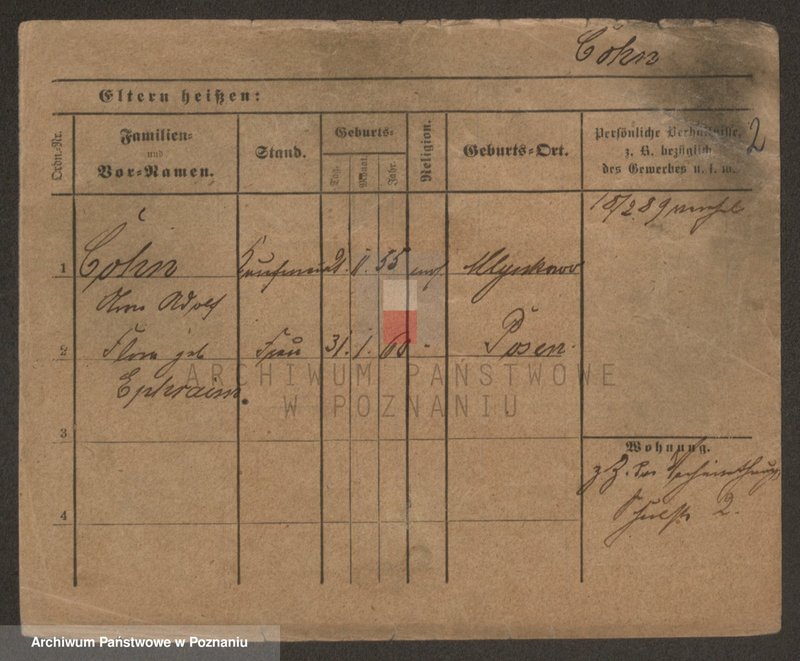 Cohn
Eltern heißen:
2
Ordn.-Nr.
Familien-
und
Vor-Namen.
Stand.
Geburts-
Tag.
Monat.
Jahr.
Religion.
Geburts-Ort.
Persönliche Verhältnisse,
z. B. bezüglich
des Gewerbes u. s. w.
18/2 89
1 Cohn Kaufmann II. 55 Mlynkowo
Adolf
2 Flora geb Frau 31. 1. 60 - Posen.
Ephraim.
ARCHIWUM PAŃSTWOWE
W POZNANIU
3
Wohnung.
z. Z.
4
2.
Archiwum Państwowe w Poznaniu